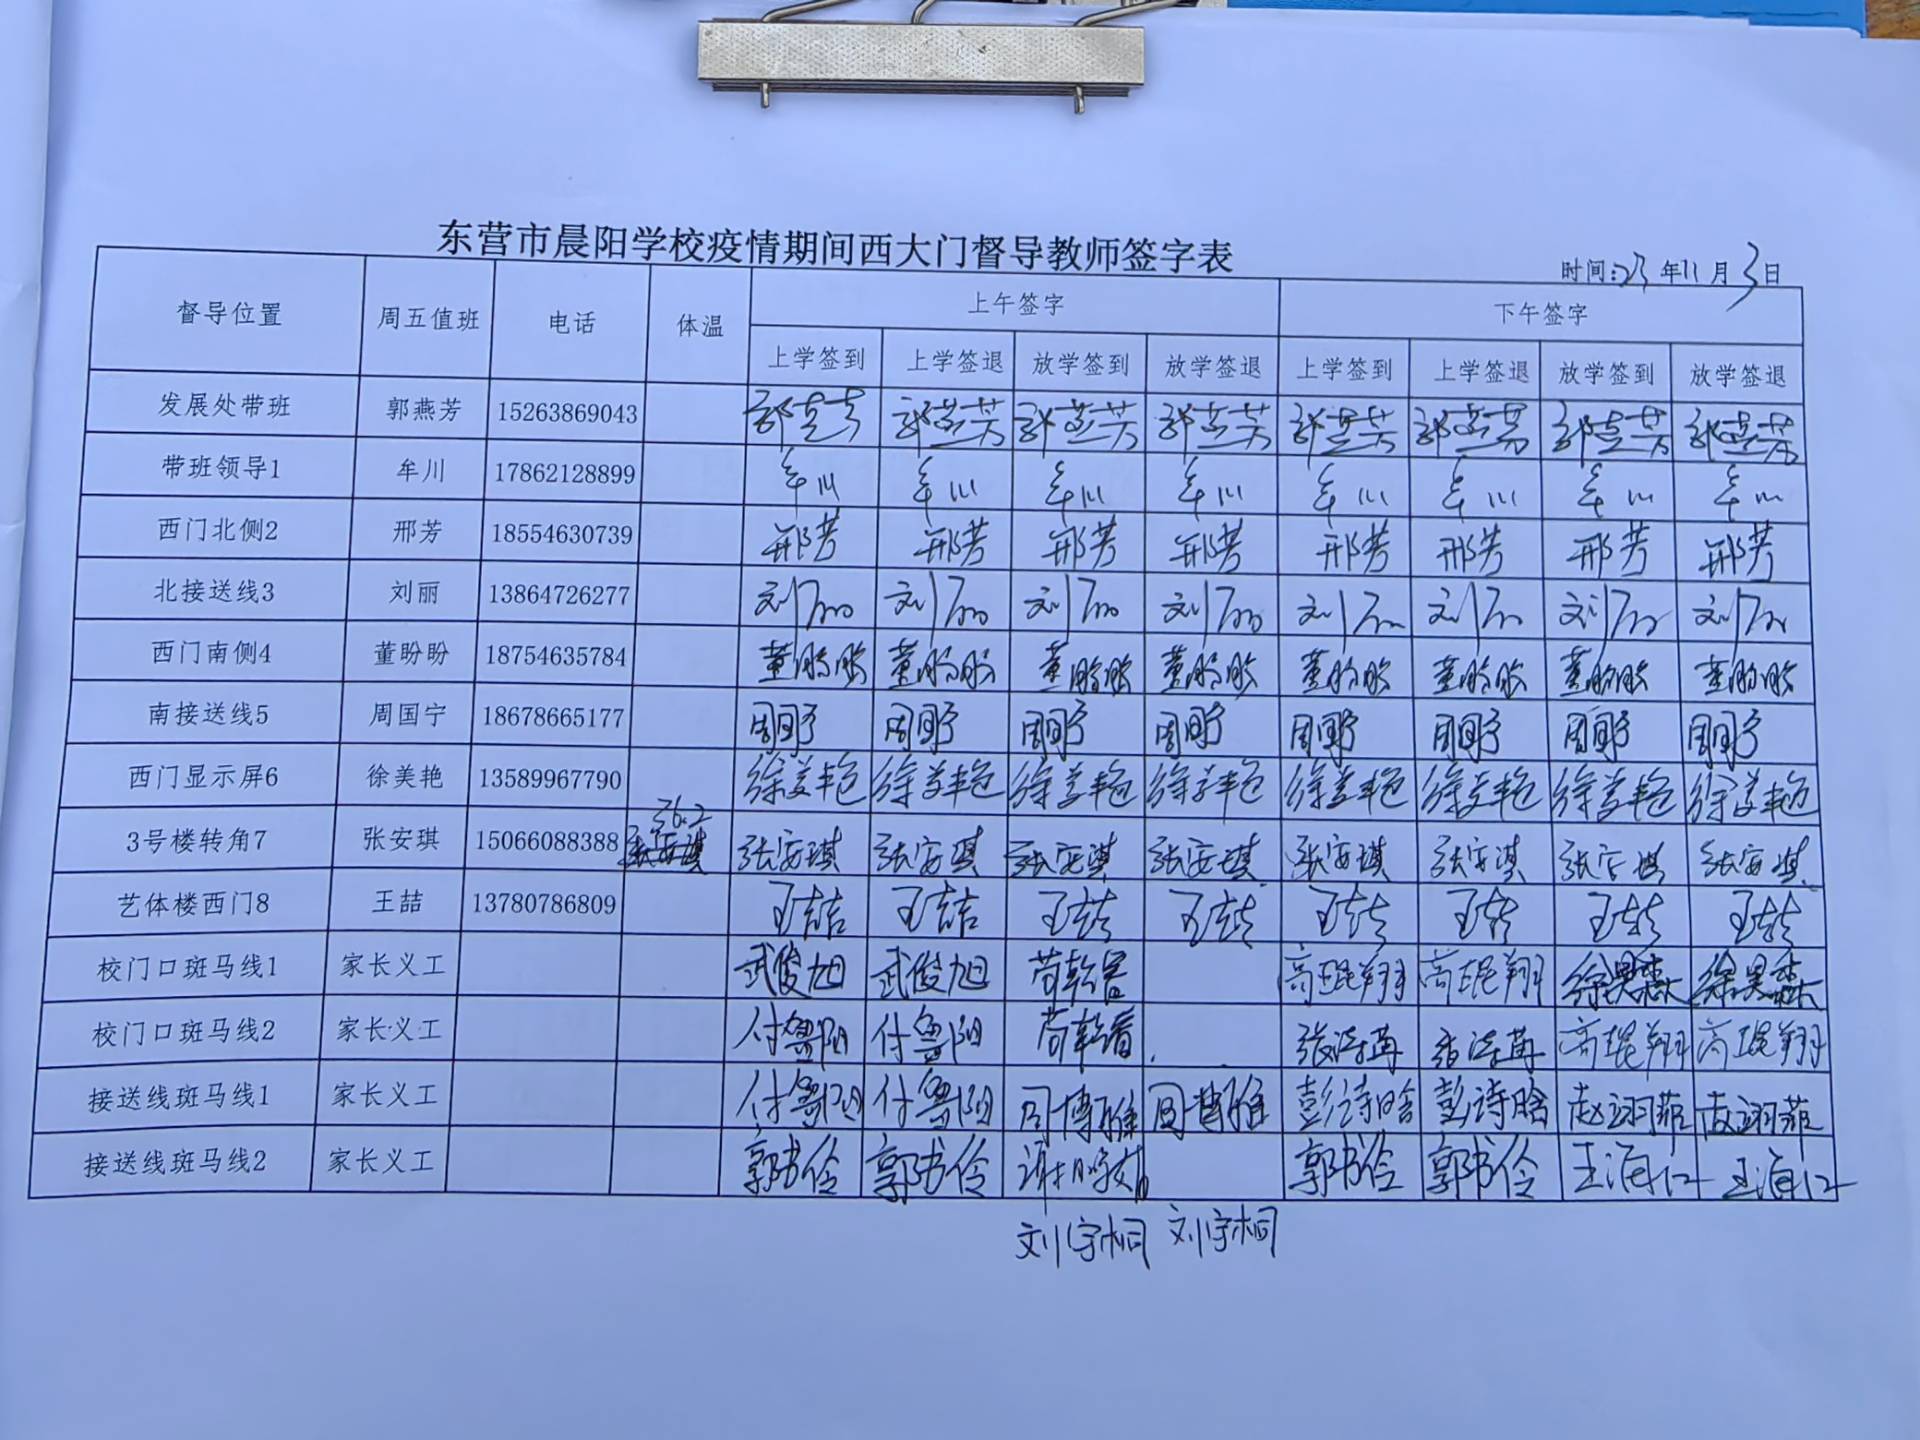 东营市晨阳学校疫情期间西大门督导教师签字表
时间:23年11月3日
督导位置 周五值班 电话 体温 上午签字 下午签字
上学签到 上学签退 放学签到 放学签退 上学签到 上学签退 放学签到 放学签退
发展处带班 郭燕芳 15263869043 郭燕芳 郭燕芳 郭燕芳 郭燕芳 郭燕芳 郭燕芳 郭燕芳 郭燕芳
带班领导1 牟川 17862128899 牟川 牟川 牟川 牟川 牟川 牟川 牟川 牟川
西门北侧2 邢芳 18554630739 邢芳 邢芳 邢芳 邢芳 邢芳 邢芳 邢芳 邢芳
北接送线3 刘丽 13864726277 刘丽 刘丽 刘丽 刘丽 刘丽 刘丽 刘丽 刘丽
西门南侧4 董盼盼 18754635784 董盼盼 董盼盼 董盼盼 董盼盼 董盼盼 董盼盼 董盼盼 董盼盼
南接送线5 周国宁 18678665177 周国宁 周国宁 周国宁 周国宁 周国宁 周国宁 周国宁 周国宁
西门显示屏6 徐美艳 13589967790 徐美艳 徐美艳 徐美艳 徐美艳 徐美艳 徐美艳 徐美艳 徐美艳
3号楼转角7 张安琪 15066088388 36.2 张安琪 张安琪 张安琪 张安琪 张安琪 张安琪 张安琪 张安琪
艺体楼西门8 王喆 13780786809 王喆 王喆 王喆 王喆 王喆 王喆 王喆 王喆
校门口斑马线1 家长义工 武俊旭 武俊旭 高琨翔 高琨翔
校门口斑马线2 家长义工 付鲁阳 付鲁阳 高琨翔 高琨翔
接送线斑马线1 家长义工 付鲁阳 付鲁阳 周博雅 周博雅 彭诗晗 彭诗晗 赵翊菲 赵翊菲
接送线斑马线2 家长义工 郭书伶 郭书伶 郭书伶 郭书伶 王海仁 王海仁
刘宇桐 刘宇桐